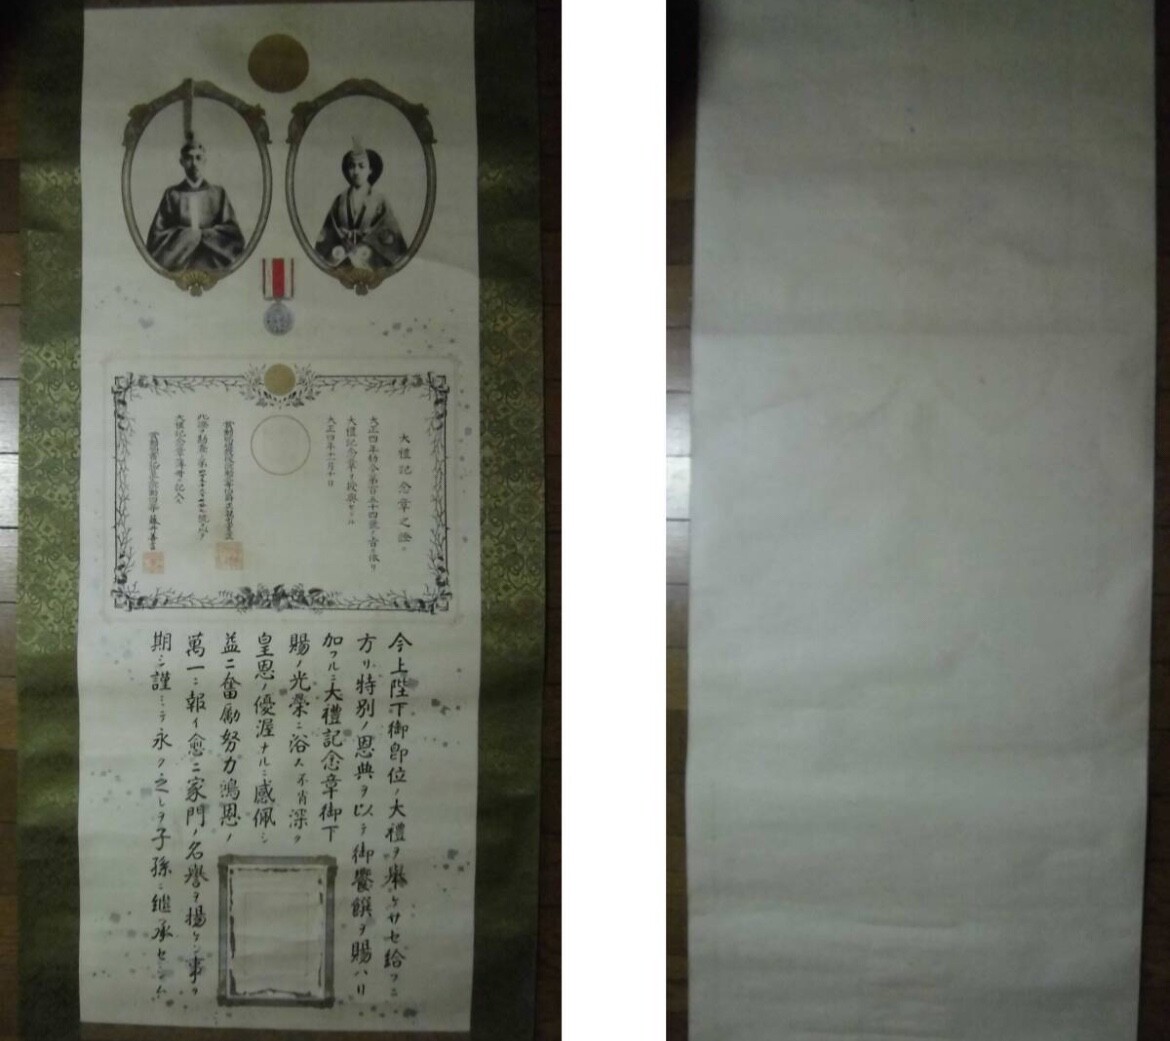 大禮記念章之證
大正四年勅令第百五十四號ノ旨ニ依リ
大禮記念章ヲ授與セラル
大正四年十一月十日
此證ヲ勘査シ第
大禮記念章簿册ニ記入ス
今上陛下御卽位ノ大禮ヲ擧ケサセ給フニ
方リ特別ノ恩典ヲ以テ御饗饌ヲ賜ハリ
加フルニ大禮記念章御下
賜ノ光榮ニ浴ス不肖深ク
皇恩ノ優渥ナルニ感佩シ
益ニ奮励努力鴻恩ノ
萬一ニ報イ愈ニ家門ノ名譽ヲ揚ケン事ヲ
期シ謹ミテ永ク之レヲ子孫ニ継承セシム